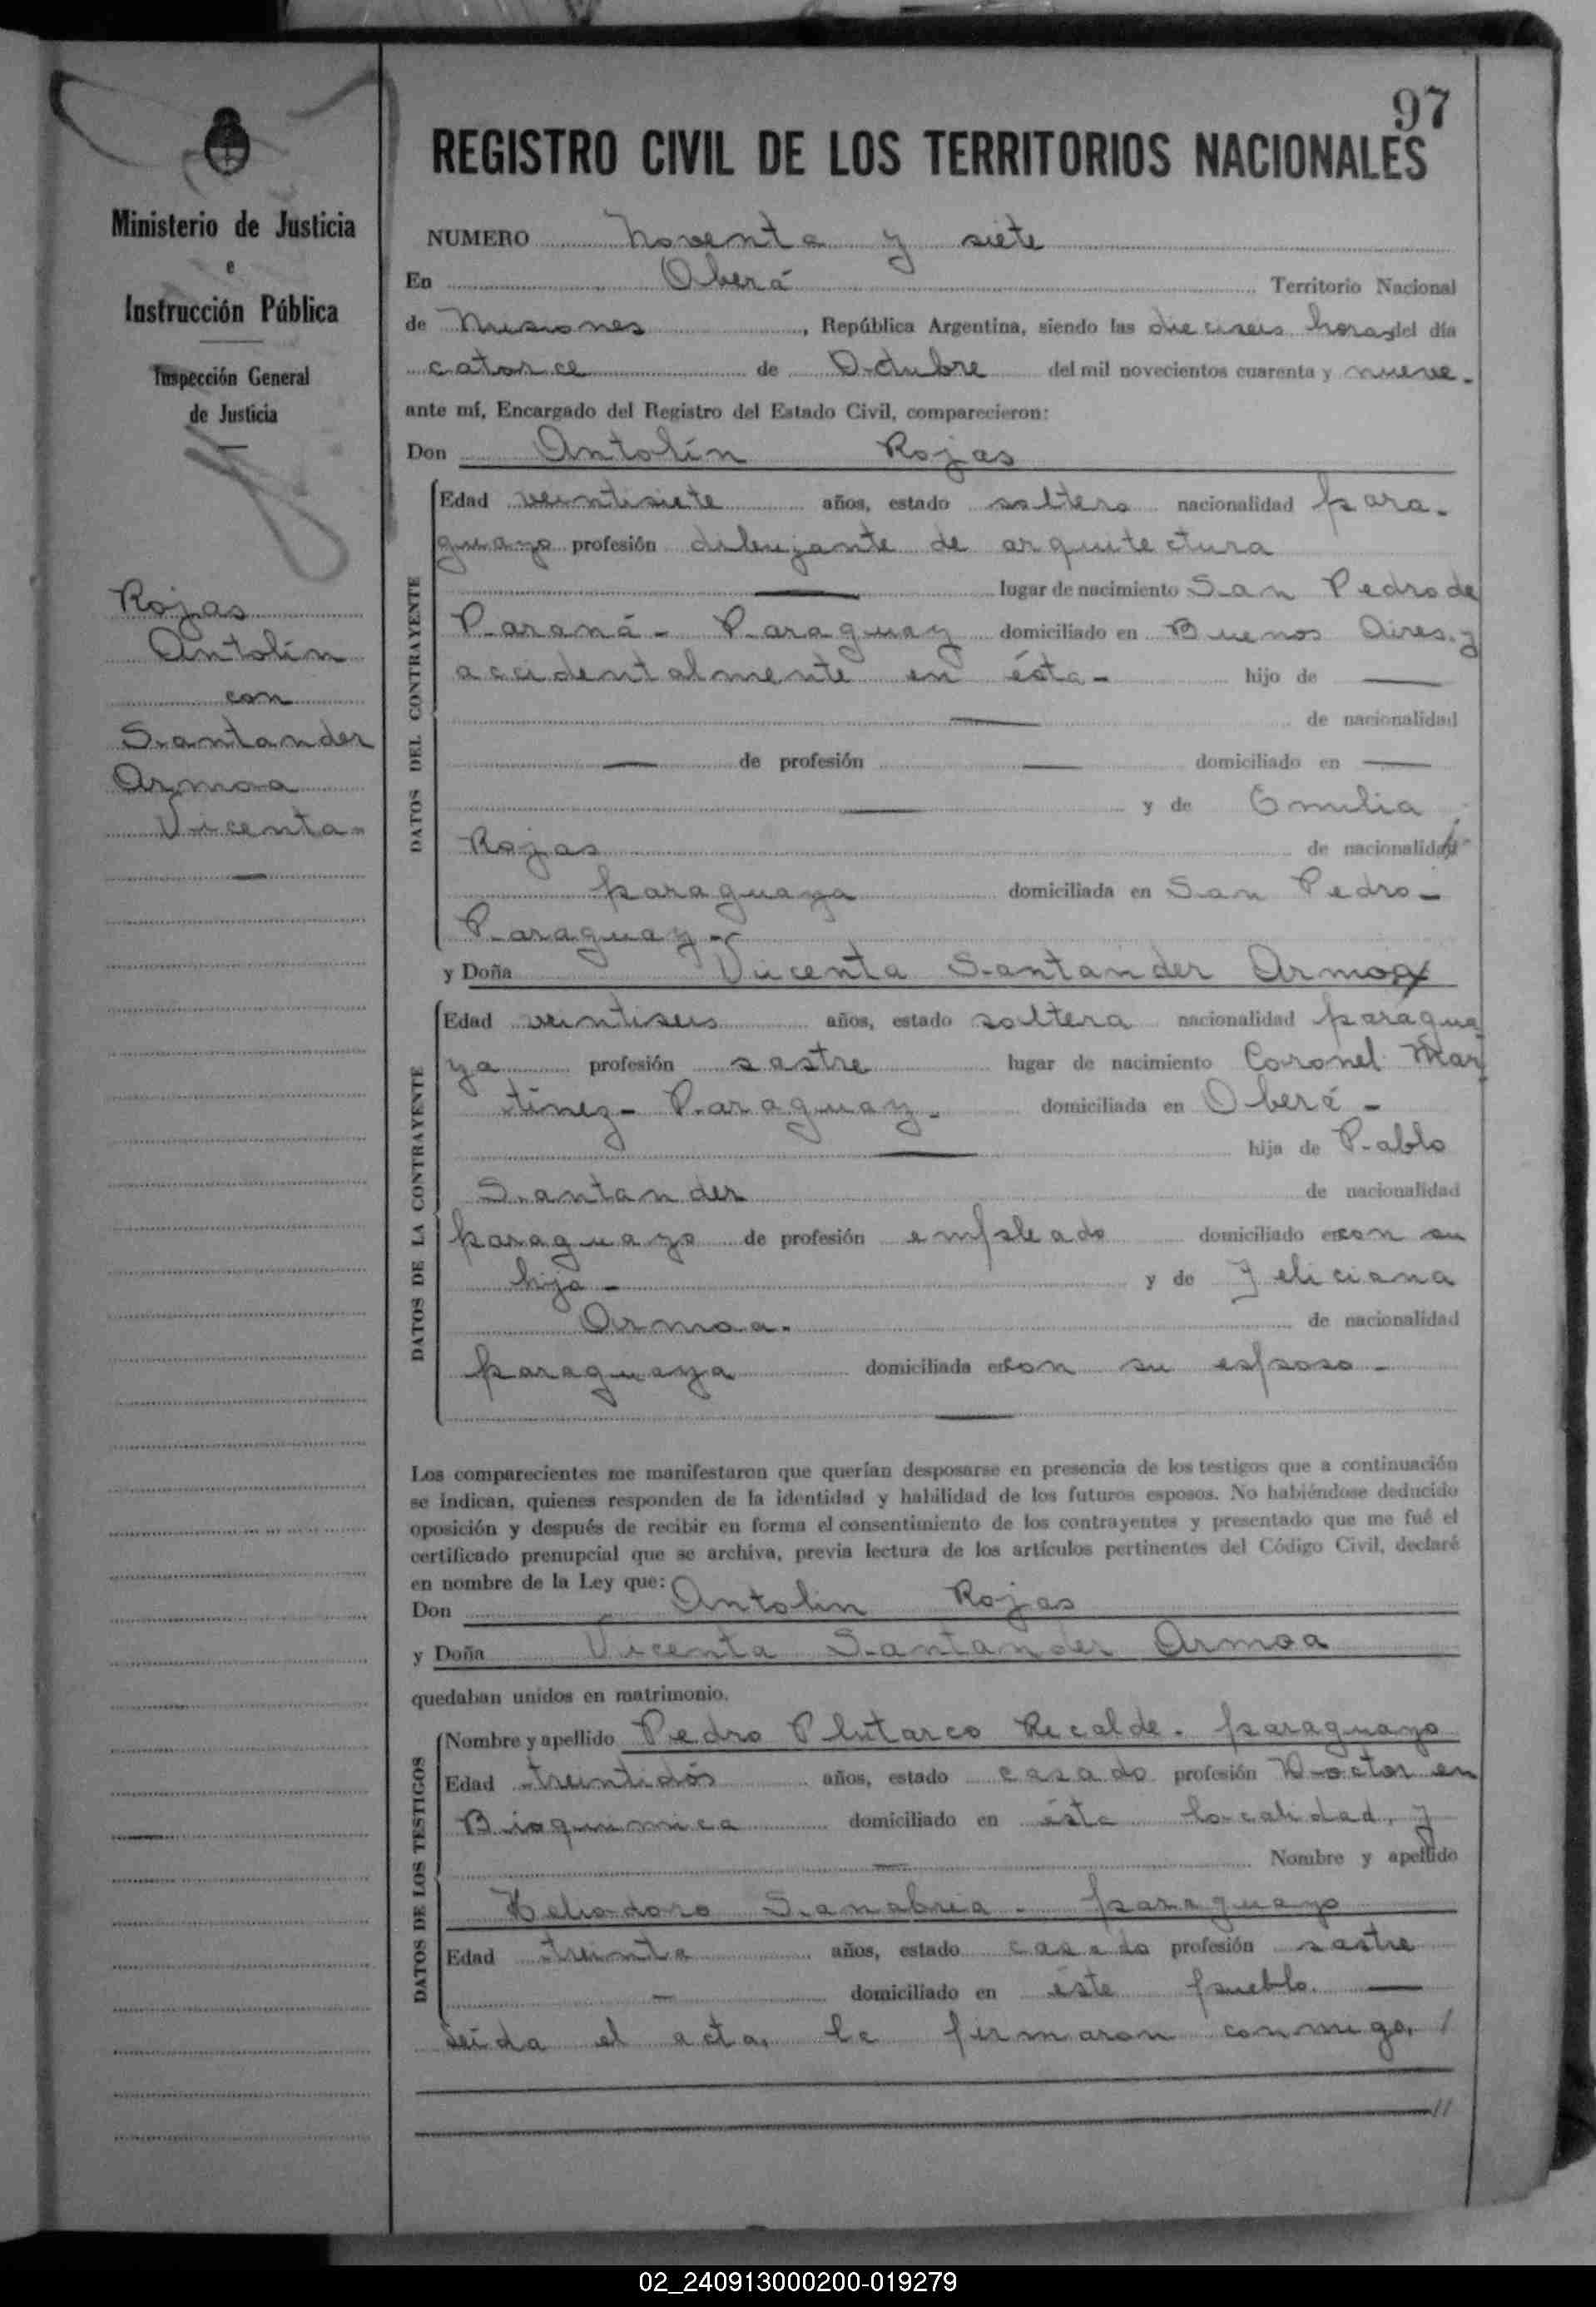 97
REGISTRO CIVIL DE LOS TERRITORIOS NACIONALES
Ministerio de Justicia
e
Instrucción Pública
Inspección General
de Justicia
Rojas
Antolín
con
Santander
Armoa
Vicenta-
NUMERO Noventa y siete
En Oberá Territorio Nacional
de Misiones, República Argentina, siendo las dieciseis horas del día
catorce de Octubre del mil novecientos cuarenta y nueve-
ante mí, Encargado del Registro del Estado Civil, comparecieron:
Don Antolín Rojas
DATOS DEL CONTRAYENTE
Edad veintisiete años, estado soltero nacionalidad para-
guayo profesión dibujante de arquitectura
lugar de nacimiento San Pedro de
Paraná- Paraguay domiciliado en Buenos Aires y
accidentalmente en ésta- hijo de —
— de nacionalidad
— de profesión — domiciliado en —
— y de Emilia
Rojas de nacionalidad
paraguaya domiciliada en San Pedro-
Paraguay-
y Doña Vicenta Santander Armoa
DATOS DE LA CONTRAYENTE
Edad veintiseis años, estado soltera nacionalidad paragua
ya profesión sastre lugar de nacimiento Coronel Mar
tinez- Paraguay- domiciliada en Oberá-
— hija de Pablo
Santander de nacionalidad
paraguayo de profesión empleado domiciliado en con su
hija- y de Feliciana
Armoa- de nacionalidad
paraguaya domiciliada en con su esposo-
Los comparecientes me manifestaron que querían desposarse en presencia de los testigos que a continuación
se indican, quienes responden de la identidad y habilidad de los futuros esposos. No habiéndose deducido
oposición y después de recibir en forma el consentimiento de los contrayentes y presentado que me fué el
certificado prenupcial que se archiva, previa lectura de los artículos pertinentes del Código Civil, declaré
en nombre de la Ley que:
Don Antolin Rojas
y Doña Vicenta Santander Armoa
quedaban unidos en matrimonio.
DATOS DE LOS TESTIGOS
Nombre y apellido Pedro Plutarco Recalde- paraguayo
Edad treintidós años, estado casado profesión Doctor en
Bioquimica domiciliado en ésta localidad, y
— Nombre y apellido
Heliodoro Sanabria- paraguayo
Edad treinta años, estado casado profesión sastre
— domiciliado en éste pueblo. —
Leída el acta, la firmaron conmigo, /
//
02_240913000200-019279